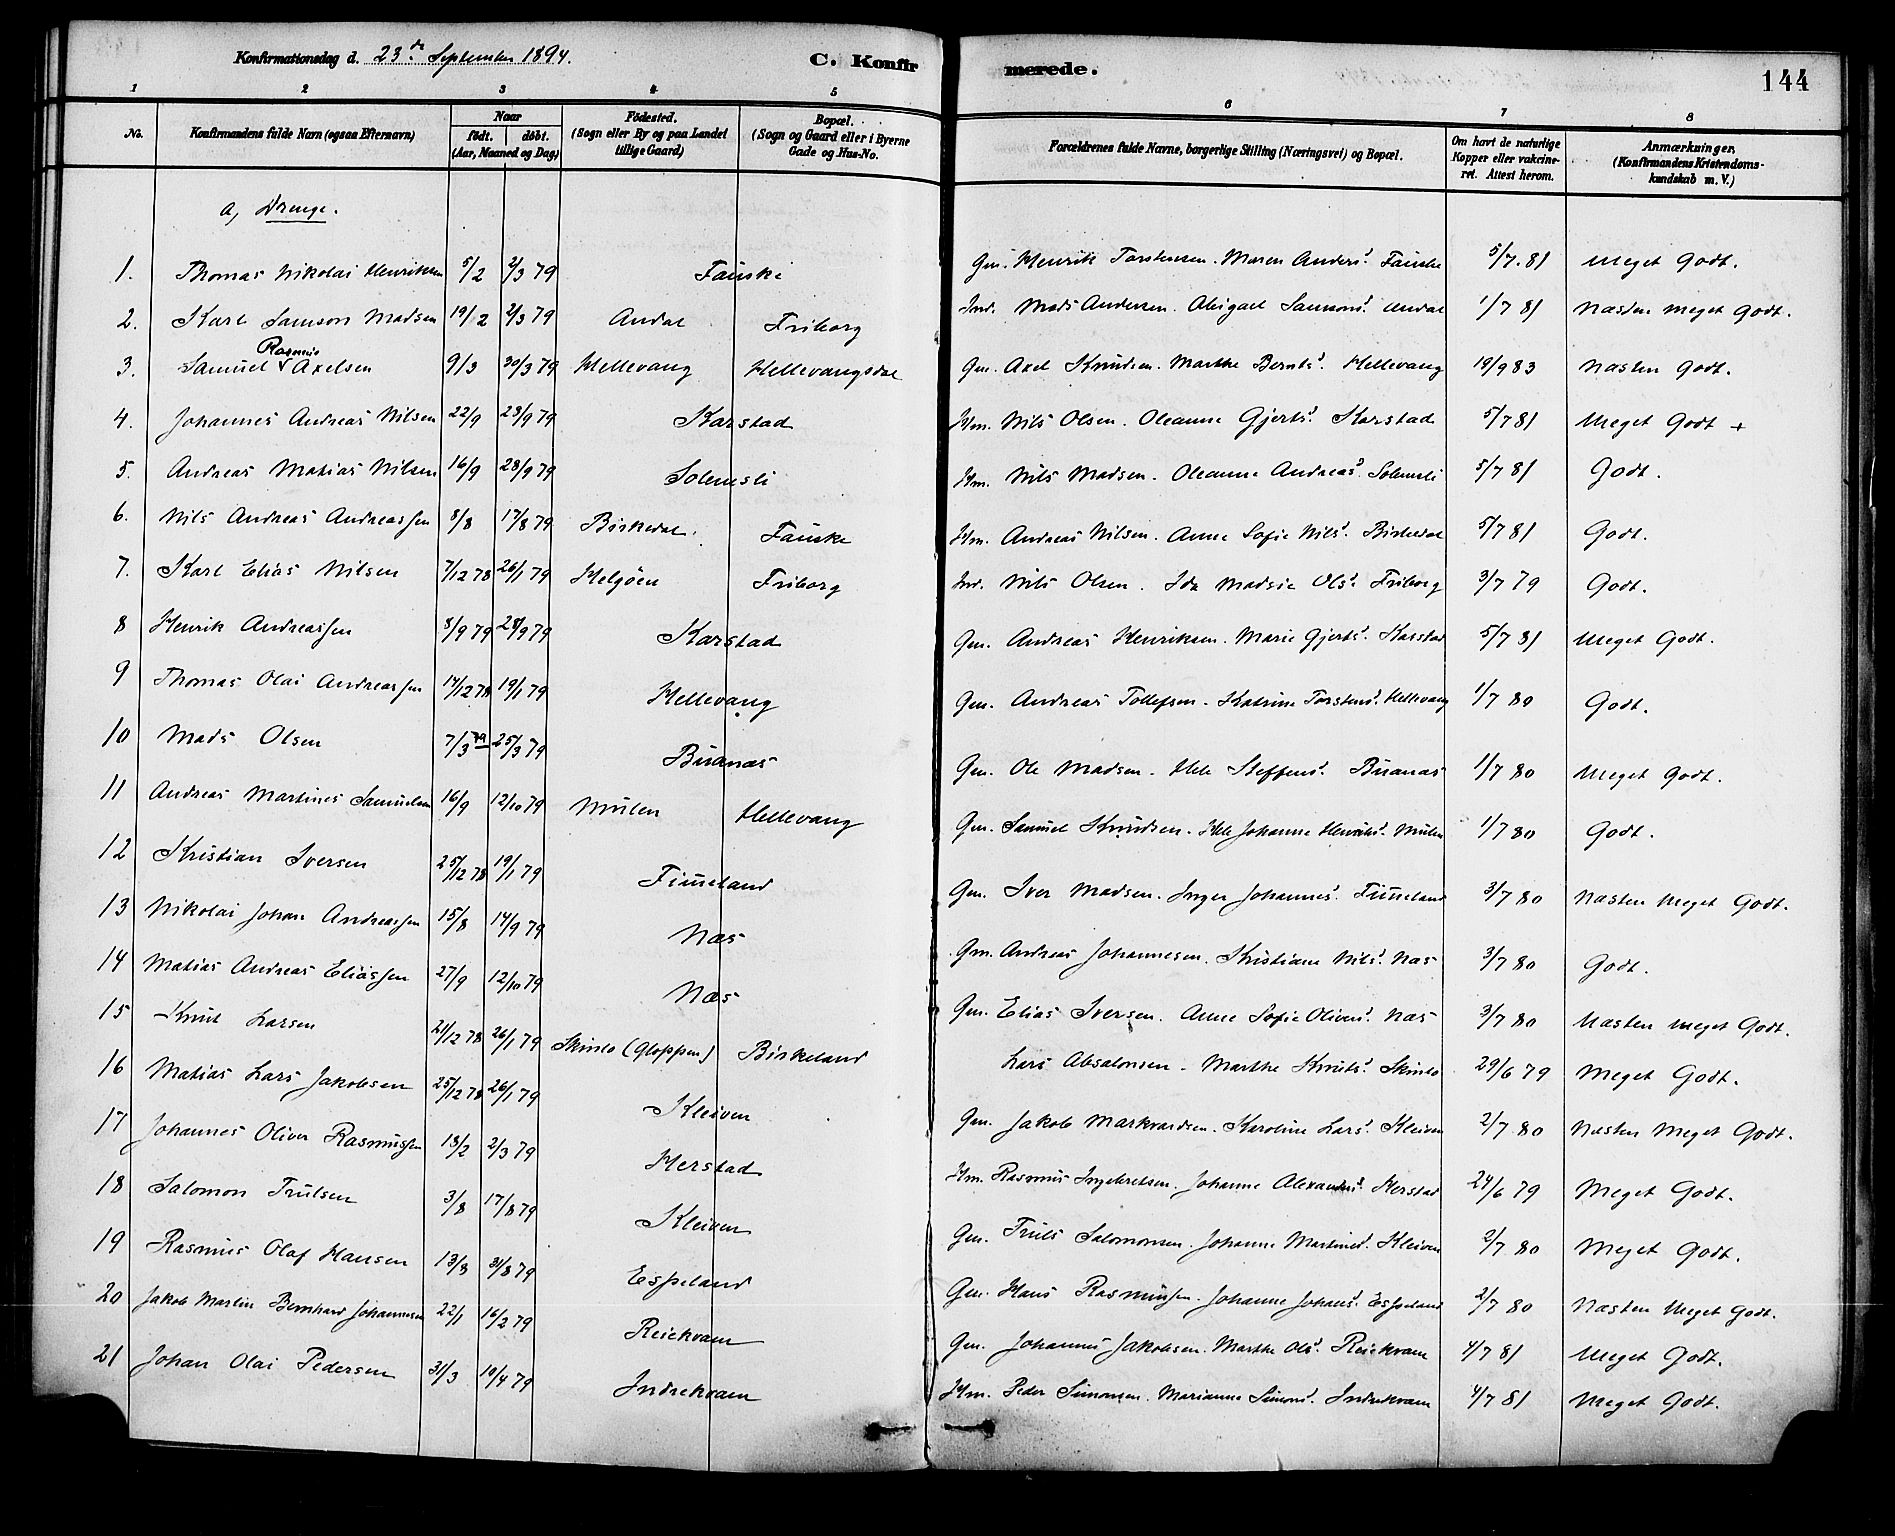 Konfirmationsdag d. 23de September 1894.
C. Konfirmerede.
144
1 2 3 4 5 6 7 8
No.
Konfirmandens fulde Navn (ogsaa Efternavn)
Naar
födt. döbt.
(Aar, Maaned og Dag)
Födested.
(Sogn eller By og paa Landet tillige Gaard)
Bopæl.
(Sogn og Gaard eller i Byerne Gade og Hus-No.
Forældrenes fulde Navne, borgerlige Stilling (Næringsvei) og Bopæl.
Om havt de naturlige Kopper eller vakcineret. Attest herom.
Anmærkninger,
(Konfirmandens Kristendomskundskab m. V.)
a, Drenge.
1. Thomas Nikolai Henriksen 5/2 2/3 79 Fauske Gm. Henrik Torstensen. Maren Anders! Fauske 5/7. 81 Meget Godt.
2. Karl Samson Madsen 19/2 2/3 79 Andal Friborg Ind. Mads Andersen. Abigael Samsons! Andal 1/7 81 Næsten meget Godt.
3. Samuel Rasmus Axelsen 9/3 30/3 79 Hellevang Hellevangsdal Gm. Axel Knudsen. Marthe Bernts! Hellevang 19/9 83 Næsten Godt.
4. Johannes Andreas Nilsen 22/9 28/9 79 Karstad Hm. Nils Olsen. Oleanne Gjerts! Karstad 5/7 81 Meget Godt +
5. Andreas Matias Nilsen 16/9 28/9 79 Solemsli Hm. Nils Madsen. Oleanne Andreas! Solemsli 5/7 81 Godt.
6. Nils Andreas Andreassen 8/8 17/8 79 Birkedal. Fauske Hm. Andreas Nilsen. Anne Sofie Nils! Birkedal 5/7 81 Godt.
7. Karl Elias Nilsen 7/12 78 26/1 79 Helgöen Friborg Ind. Nils Olsen. Ida Madsie Ols! Friborg 3/7 79 Godt.
8 Henrik Andreassen 8/9 79 28/9 79 Karstad Gm. Andreas Henriksen. Marie Gjerts! Karstad 5/7 81 Meget Godt.
9 Thomas Olai Andreassen 14/12 78 19/1 79 Hellevang Gm. Andreas Tollefsen. Katrine Torstens! Hellevang 1/7 80 Godt.
10 Mads Olsen 7/3 79 25/3 79 Buanæs Gm. Ole Madsen. Hele Steffens! Buanæs 1/7 80 Meget Godt.
11 Andreas Martines Samuelsen 16/9 12/10 79 Mulen Hellevang Gm. Samuel Knudsen. Hele Johanne Henriks! Mulen 1/7 80 Godt.
12 Kristian Iversen 25/12 78 19/1 79 Timeland Gm. Iver Madsen. Inger Johannes! Timeland 3/7 80 Næsten Meget Godt.
13 Nikolai Johan Andreassen 15/8 14/9 79 Næs Gm. Andreas Johannesen. Kristiane Nils! Næs 3/7 80 Godt.
14 Matias Andreas Eliassen 27/9 12/10 79 Næs Gm. Elias Iversen. Anne Sofie Olivers! Næs 3/7 80 Næsten meget Godt.
15 Knut Larsen 21/12 78 26/1 79 Skinlo (Gloppen) Birkeland Lars Absalonsen. Marthe Knuts! Skinlo 29/6 79 Meget Godt.
16 Matias Lars Jakobsen 25/12 78 26/1 79 Kleiven Gm. Jakob Markvardsen. Karoline Lars! Kleiven 2/7 80 Næsten Meget Godt.
17 Johannes Oliver Rasmussen 18/2 2/3 79 Herstad Hm. Rasmus Ingebretsen. Johanne Alexanders! Herstad 24/6 79 Meget Godt.
18 Salomon Trulsen 3/8 17/8 79 Kleiven Gm. Truls Salomonsen. Johanne Martines! Kleiven 2/7 80 Meget Godt.
19 Rasmus Olaf Hansen 13/8 31/8 79 Espeland Gm. Hans Rasmussen. Johanne Johans! Espeland 2/7 80 Næsten Meget Godt.
20 Jakob Martin Bernhard Johannesen 22/1 16/2 79 Reiekvam Gm. Johannes Jakobsen. Marthe Ols! Reiekvam 4/7 81 Meget Godt.
21 Johan Olai Pedersen 31/3 10/4 79 Indrekvam Hm. Peder Simonsen. Marianne Simons! Indrekvam 4/7 81 Meget Godt.